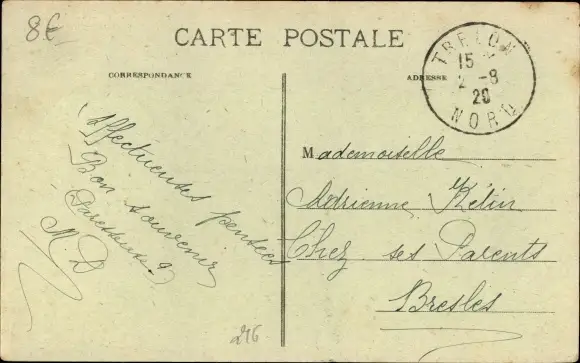 8€
CARTE POSTALE
CORRESPONDANCE
ADRESSE
TRELON
15
2 -8
20
NORD
Affectueuses pensées
Bon souvenir
M. D
Mademoiselle
Adrienne Kélin
Chez ses Parents
Bresles
216